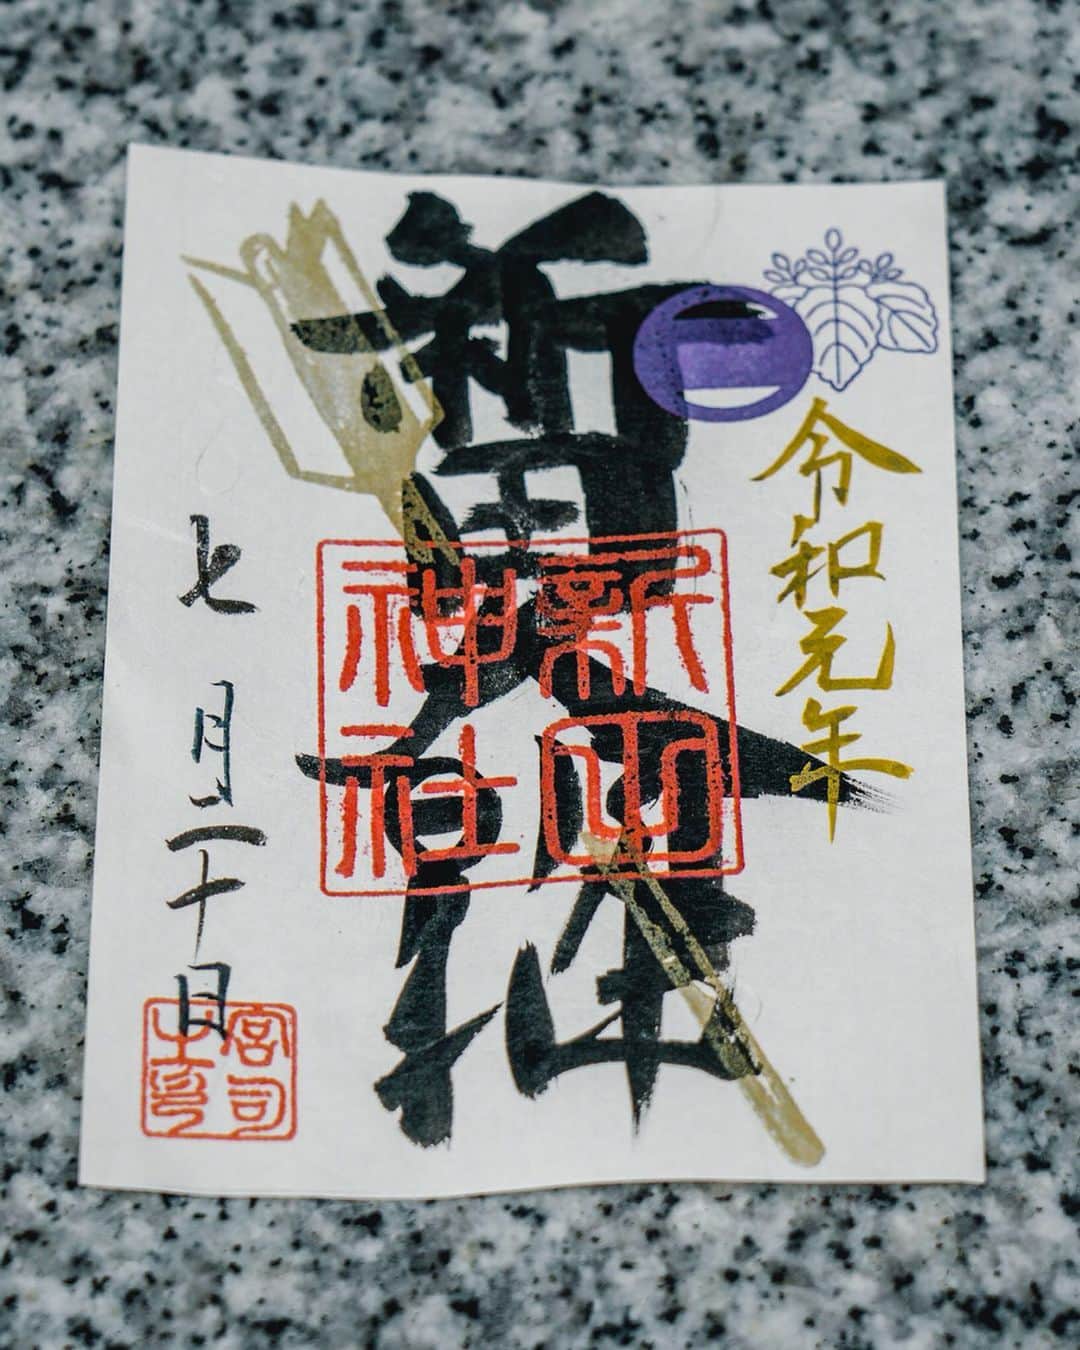 令和元年
新田
新田
神社
七月二十日
宮司
之印